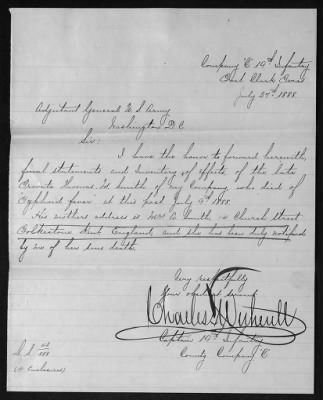 Company "C" 19th Infantry
Fort Clark Texas
July 27th 1888.
Adjutant General U S Army
Washington D.C.
Sir:
I have the honor to forward herewith,
final statements and Inventory of effects of the late
Private Thomas W. Smith of my Company who died of
Typhoid fever at this post July 9th 1888.
His mothers address is Mrs A. Smith, Church Street
Folkestone Kent England, and she has been duly notified
by me of her sons death.
Very respectfully
Your obedient servant
Charles
Captain 19th Infantry
Comdg Company "C"
(4 Enclosures)